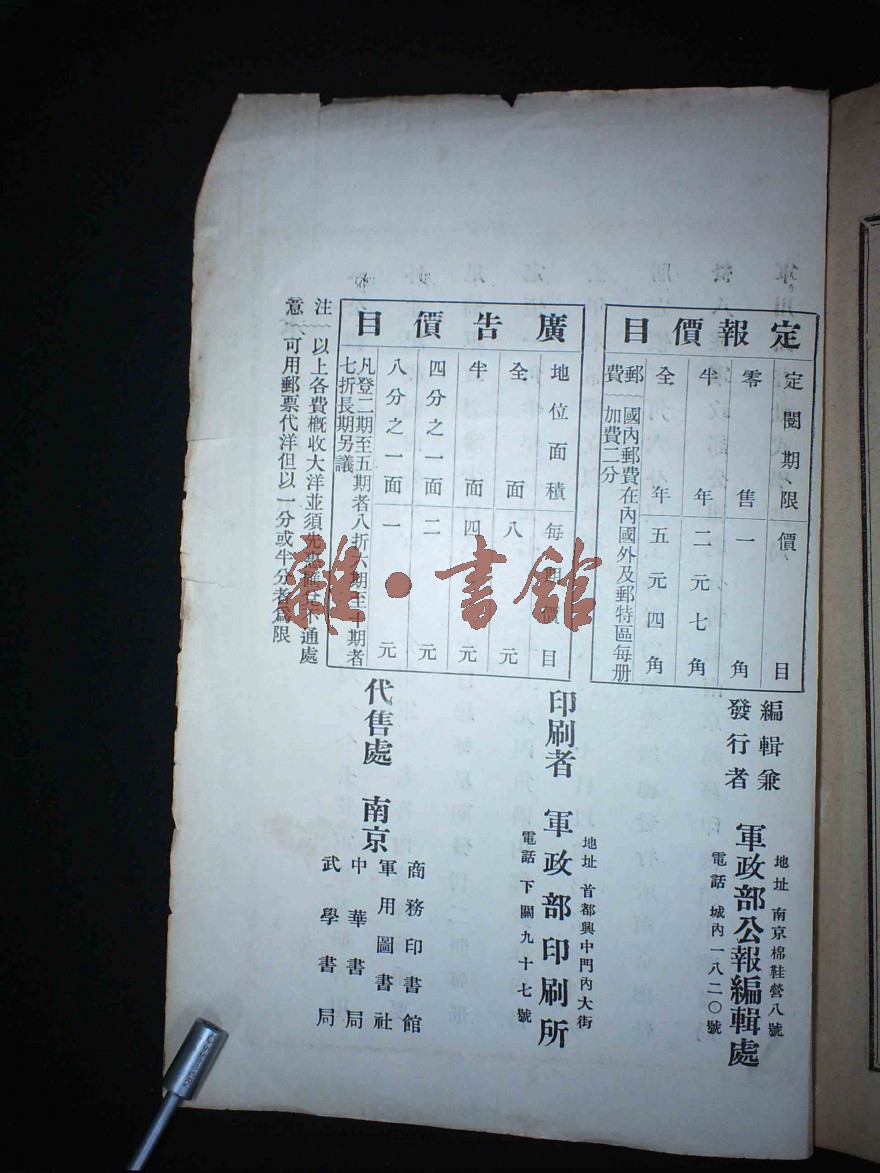 定報價目
定閱期限 價目
零售 一角
半年 二元七角
全年 五元四角
郵費 國內郵費在內國外及郵特區每册
加費二分
廣告價目
地位面積 每期價目
全面 八元
半面 四元
四分之一面 二元
八分之一面 一元
凡登二期至五期者八折六期至十期者
七折長期另議
注意
以上各費概收大洋並須先 不通處
可用郵票代洋但以一分或半分者爲限
編輯兼
發行者
地址 南京棉鞋營八號
軍政部公報編輯處
電話 城內一八二〇號
印刷者
地址 首都興中門內大街
軍政部印刷所
電話 下關九十七號
代售處 南京
商務印書館
軍用圖書社
中華書局
武學書局
雜·書館